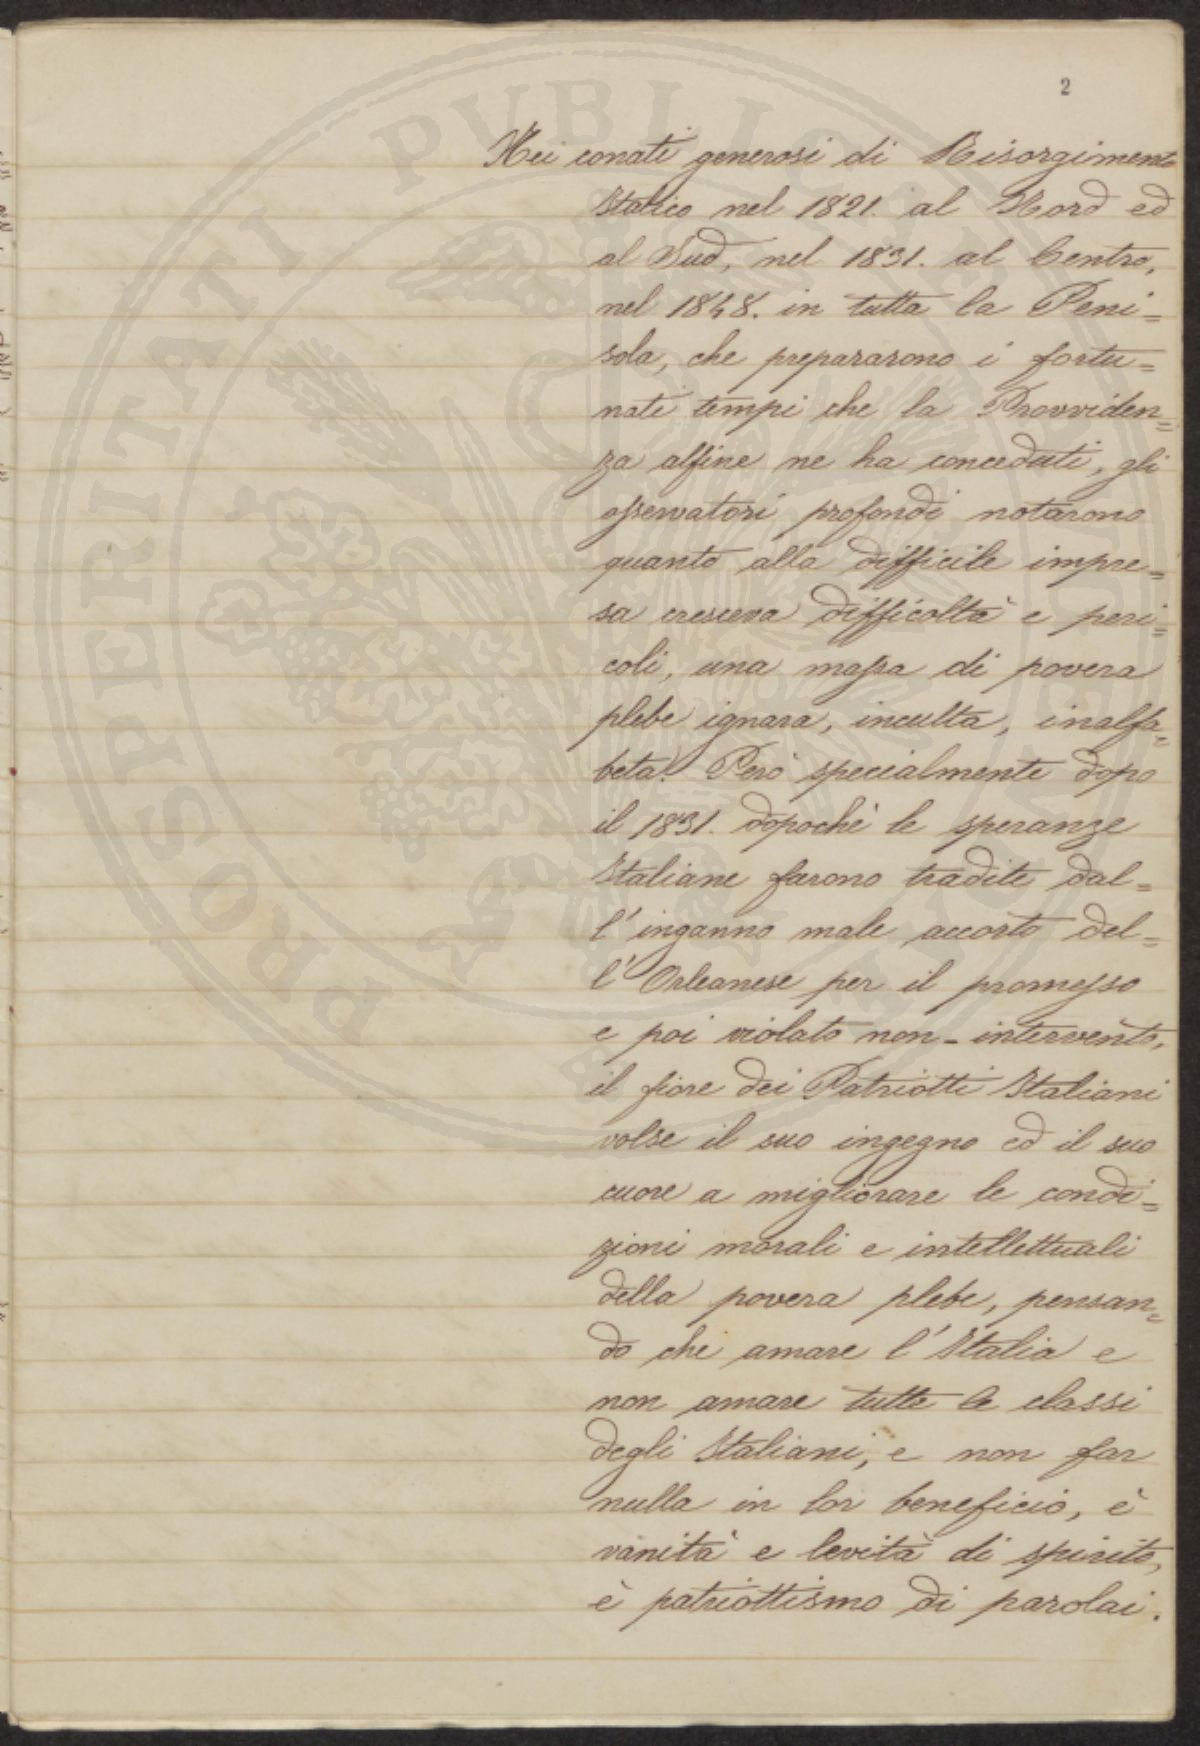 2
Nei conati generosi di Risorgimento
Italico nel 1821. al Nord ed
al Sud, nel 1831. al Centro,
nel 1848. in tutta la Peni=
sola, che prepararono i fortu=
nati tempi che la Provviden=
za alfine ne ha conceduti, gli
osservatori profondi notarono
quanto alla difficile impre=
sa cresceva difficoltà e peri=
coli, una massa di povera
plebe ignara, inculta, inalfa=
beta. Però specialmente dopo
il 1831. dopochè le speranze
Italiane furono tradite dal=
l'inganno male accorto del=
l'Orleanese per il promesso
e poi violato non-intervento,
il fiore dei Patriotti Italiani
volse il suo ingegno ed il suo
cuore a migliorare le condi=
zioni morali e intellettuali
della povera plebe, pensan=
do che amare l'Italia e
non amare tutte le classi
degli Italiani, e non far
nulla in lor beneficio, è
vanità e levità di spirito,
è patriottismo di parolai.
PROSPERITATI PUBLICAE